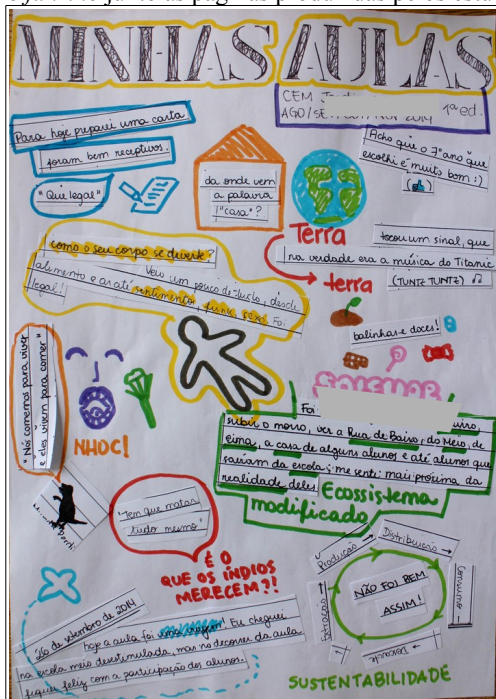 MINHAS AULAS
CEM
AGO/SE
2014
1ª ed.
Para hoje preparei uma carta
foram bem receptivos.
"Que legal"
da onde vem
a palavra
"casa"?
Acho que o 3º ano que
escolhi é muito bom :)
Terra
terra
tocou um sinal, que
na verdade era a música do Titanic
(TUNTZ TUNTZ)
como o seu corpo se diverte?
Veio um pouco de tudo, desde
alimento e até sentimentos, funk, sexo. Foi
legal!
balinhas e doces!
"Nós comemos para viver
e eles vivem para comer"
NHOC!
Foi
subir o morro, ver a Rua de Baixo, do Meio, de
cima, a casa de alguns alunos e até alunos que
saíam da escola; me senti mais próxima da
realidade deles
Ecossistema
modificado
"Tem que matar
tudo mesmo"
É O
QUE OS ÍNDIOS
MERECEM?!
Produção
Distribuição
Consumo
Descarte
NÃO FOI BEM
ASSIM!
26 de setembro de 2014
hoje a aula foi uma viagem! Eu cheguei
na escola meio desestimulada, mas no decorrer da aula
fiquei feliz com a participação dos alunos.
SUSTENTABILIDADE